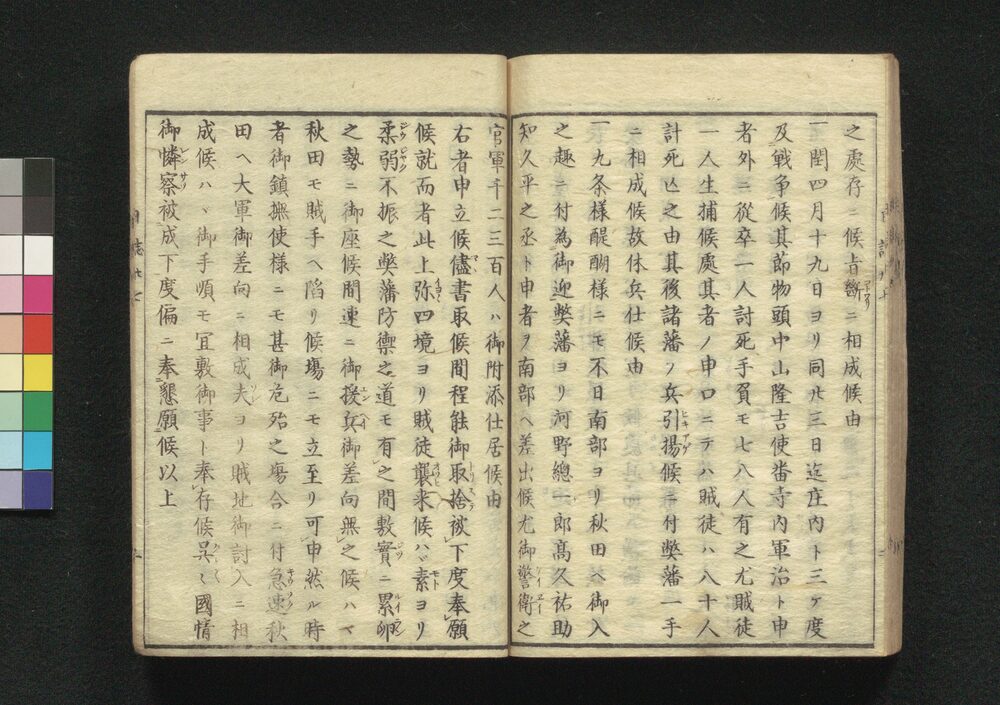 之處存ニ候旨斷ニ相成候由
一閏四月十九日ヨリ同廿三日迄庄内ト三ヶ度
及戦争候其節物頭中山隆吉使畨寺内軍治ト申
者外ニ從卒一人討死手負モ七八人有之尤賊徒
一人生捕候處其者ノ申口ニテハ賊徒ハ八十人
計死亡之由其後諸藩ノ兵引揚候ニ付弊藩一手
ニ相成候故休兵仕候由
一九条様醍醐様ニモ不日南部ヨリ秋田ヘ御入
之趣ニ付為御迎弊藩ヨリ河野總一郎高久祐助
知久平之丞ト申者ヲ南部ヘ差出候尤御警衛之
官軍千二三百人ハ御附添仕居候由
右者申立候儘書取候間程能御取捨被下度奉願
候就而者此上弥四境ヨリ賊徒襲来候ハヽ素ヨリ
柔弱不振之弊藩防禦之道モ有之間敷實ニ累卵
之勢ニ御座候間速ニ御援兵御差向無之候ハヽ
秋田モ賊手ヘ陷リ候場ニモ立至リ可申然ル時
者御鎮撫使様ニモ甚御危殆之場合ニ付急速秋
田ヘ大軍御差向ニ相成夫ヨリ賊地御討入ニ相
成候ハヽ御手順モ宜敷御事ト奉存候呉〻國情
御憐察被成下度偏ニ奉懇願候以上